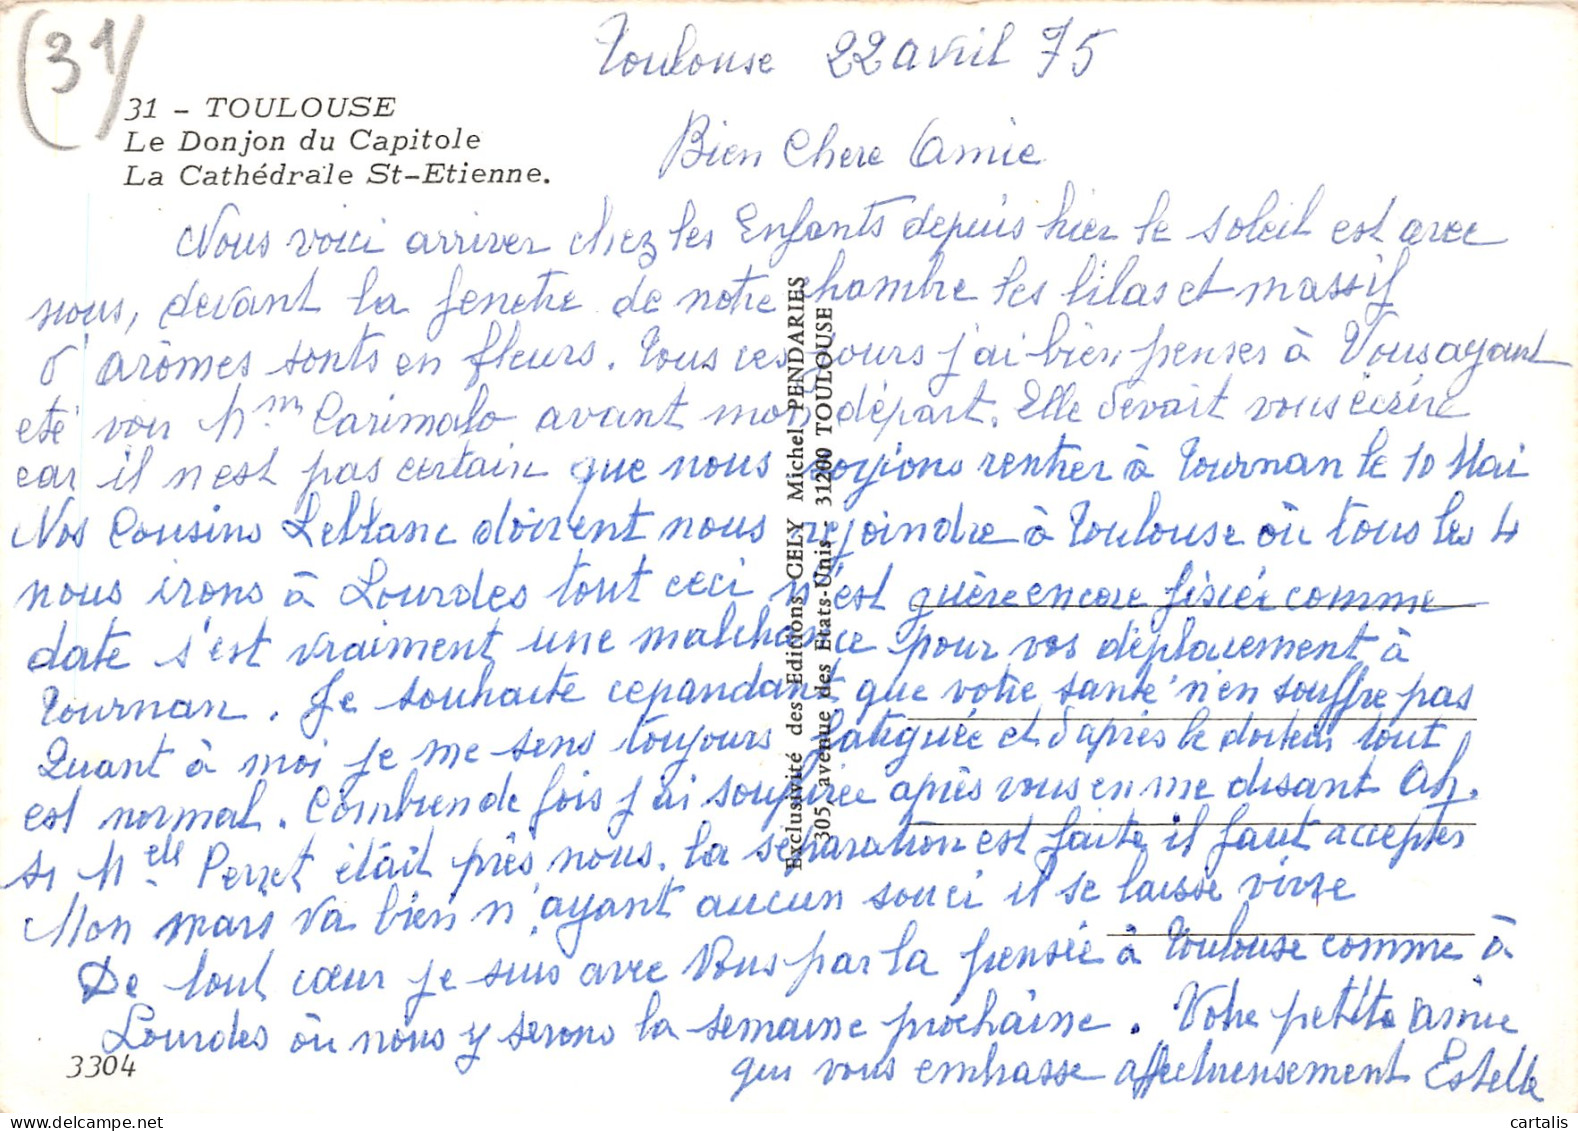 (31)
Toulouse 22 avril 75
31 - TOULOUSE
Le Donjon du Capitole
La Cathédrale St-Etienne.
Bien Chere Amie
Nous voici arriver chez les Enfants depuis hier le soleil est avec
nous, devant la fenetre de notre chambre les lilas et massif
d'arômes sonts en fleurs. Tous ces jours j'ai bien penser à Vous ayant
eté voir Mme Carimalo avant mon départ. Elle devait vous écrire
car il n'est pas certain que nous soyions rentrer à Tournan le 10 Mai
Nos Cousins Leblanc doivent nous rejoindre à Toulouse où tous les 4
nous irons à Lourdes tout ceci n'est guère encore fixée comme
date s'est vraiment une malchance pour vos déplacement à
Tournan. Je souhaite cependant que votre santé n'en souffre pas
Quant à moi je me sens toujours fatiguée et d'après le docteur tout
est normal. Combien de fois j'ai soupirée après vous en me disant Ah.
si Melle Perret était près nous. La séparation est faite il faut accepter
Mon mari va bien n'ayant aucun souci il se laisse vivre
De tout cœur je suis avec Vous par la pensée à Toulouse comme à
Lourdes où nous y serons la semaine prochaine. Votre petite amie
qui vous embrasse affectueusement Estelle
3304
Exclusivité des Editions CELY Michel PENDARIES
305, avenue des Etats-Unis 31200 TOULOUSE
cartalis